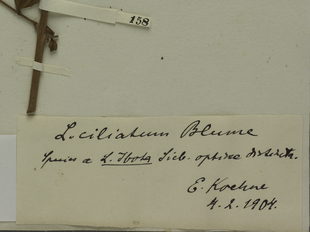 158
L. ciliatum Blume
Species a L. Ibota Sieb. optime distincta.
E. Koehne
4.2.1904.